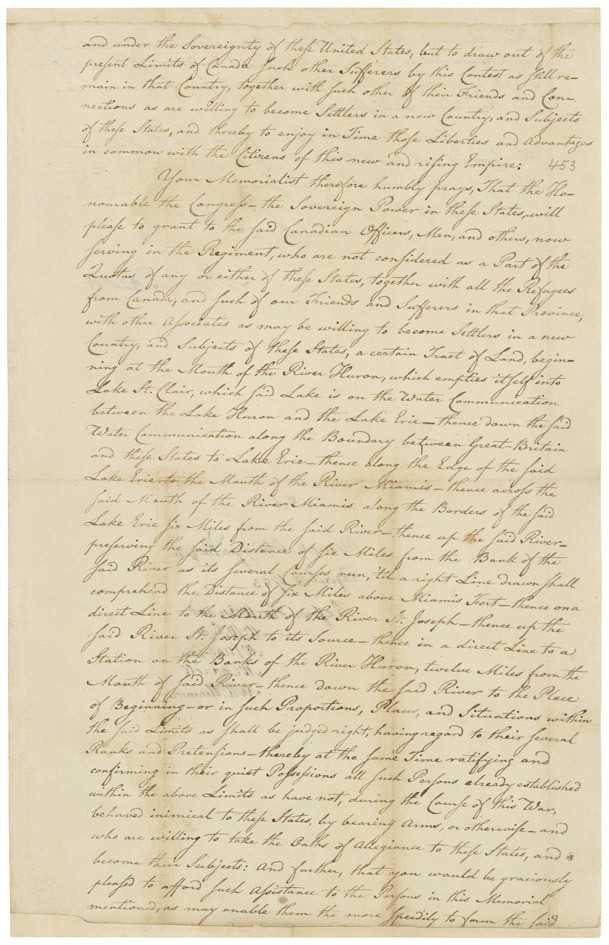 and under the Sovereignty of these United States, but to draw out of the
present Limits of Canada such other Sufferers by this Contest as still re-
main in that Country, together with such other of their Friends and Con-
nections as are willing to become Settlers in a new Country, and Subjects
of these States, and thereby to enjoy in Time those Liberties and Advantages
in common with the Citizens of this new and rising Empire:
453
Your Memorialist therefore humbly prays, That the Ho-
nourable the Congress - the Sovereign Power in these States, will
please to grant to the said Canadian Officers, Men, and others, now
serving in the Regiment, who are not considered as a Part of the
Quotas of any or either of these States, together with all the Refugees
from Canada, and such of our Friends and Sufferers in that Province,
with other Associates as may be willing to become Settlers in a new
Country, and Subjects of these States, a certain Tract of Land, begin-
ning at the Mouth of the River Huron, which empties itself into
Lake St. Clair, which said Lake is on the Water Communication
between the Lake Huron and the Lake Erie - thence down the said
Water Communication along the Boundary between Great-Britain
and these States to Lake Erie - thence along the Edge of the said
Lake Erie to the Mouth of the River Miamis - thence across the
said Mouth of the River Miamis along the Borders of the said
Lake Erie six Miles from the said River - thence up the said River -
preserving the said Distance of six Miles from the Bank of the
said River as its several Courses run, 'til a right Line drawn shall
comprehend the Distance of six Miles above Miamis Fort - thence on a
direct Line to the Mouth of the River St. Joseph - thence up the
said River St. Joseph to its Source - thence in a direct Line to a
Station on the Banks of the River Huron, twelve Miles from the
Mouth of said River - thence down the said River to the Place
of Beginning - or in such Proportions, Places, and Situations within
the said Limits as shall be judged right, having regard to their several
Ranks and Pretensions - thereby at the same Time ratifying and
confirming in their quiet Possessions all such Persons already established
within the above Limits as have not, during the Course of this War,
behaved inimical to these States, by bearing Arms, or otherwise - and
who are willing to take the Oaths of Allegiance to these States, and
become their Subjects: And further, that you would be graciously
pleased to afford such Assistance to the Persons in this Memorial
mentioned, as may enable them the more speedily to form the said